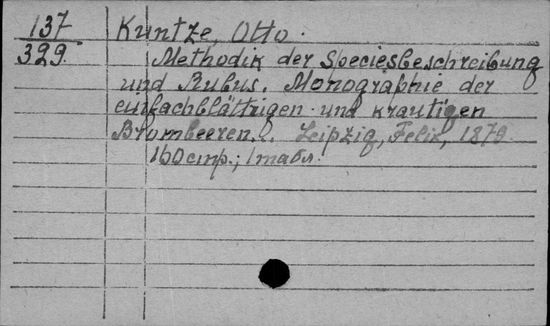 137
329.
Kuntze, Otto.
Methodik der Speciesbeschreibung
und Rubus. Monographie der
einfachblättrigen und krautigen
Brombeeren... Leipzig, Felix, 1879.
160 стр.; 1 табл.